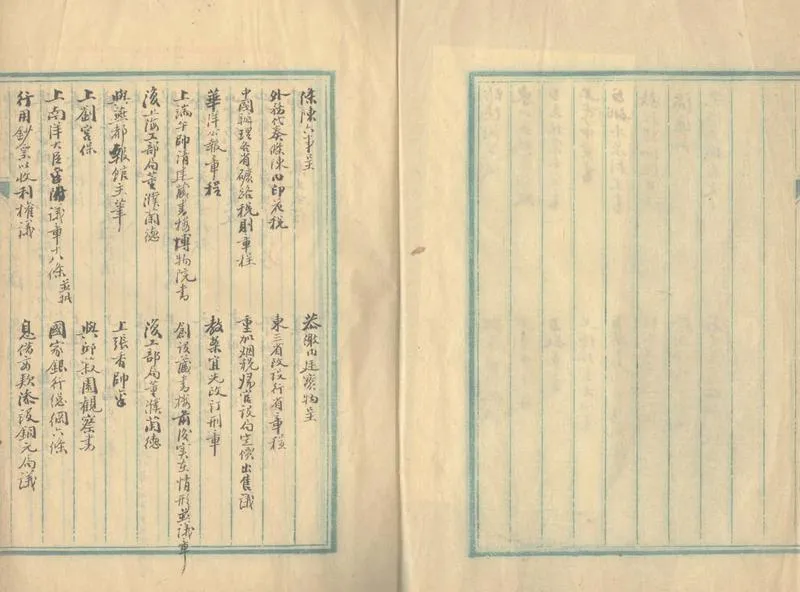 條陳六事呈
恭繳內廷寶物呈
外務代奏條陳內印花稅
東三省改設行省章程
中國辦理各省礦路稅則章程
重加烟稅歸官設局定價出售議
華洋公報章程
教案宜先改訂刑章
上端午帥請建藏書樓博物院書
創設藏書樓前後實在情形並議章
復上海工部局董濮蘭德
復工部局董濮蘭德
與燕都報館主筆
上張香帥
上劉宮保
與邱菽園觀察書
上南洋大臣議章十八條
國家銀行億綱六條
行用鈔票以收利權議
息借商款添設銅元局議